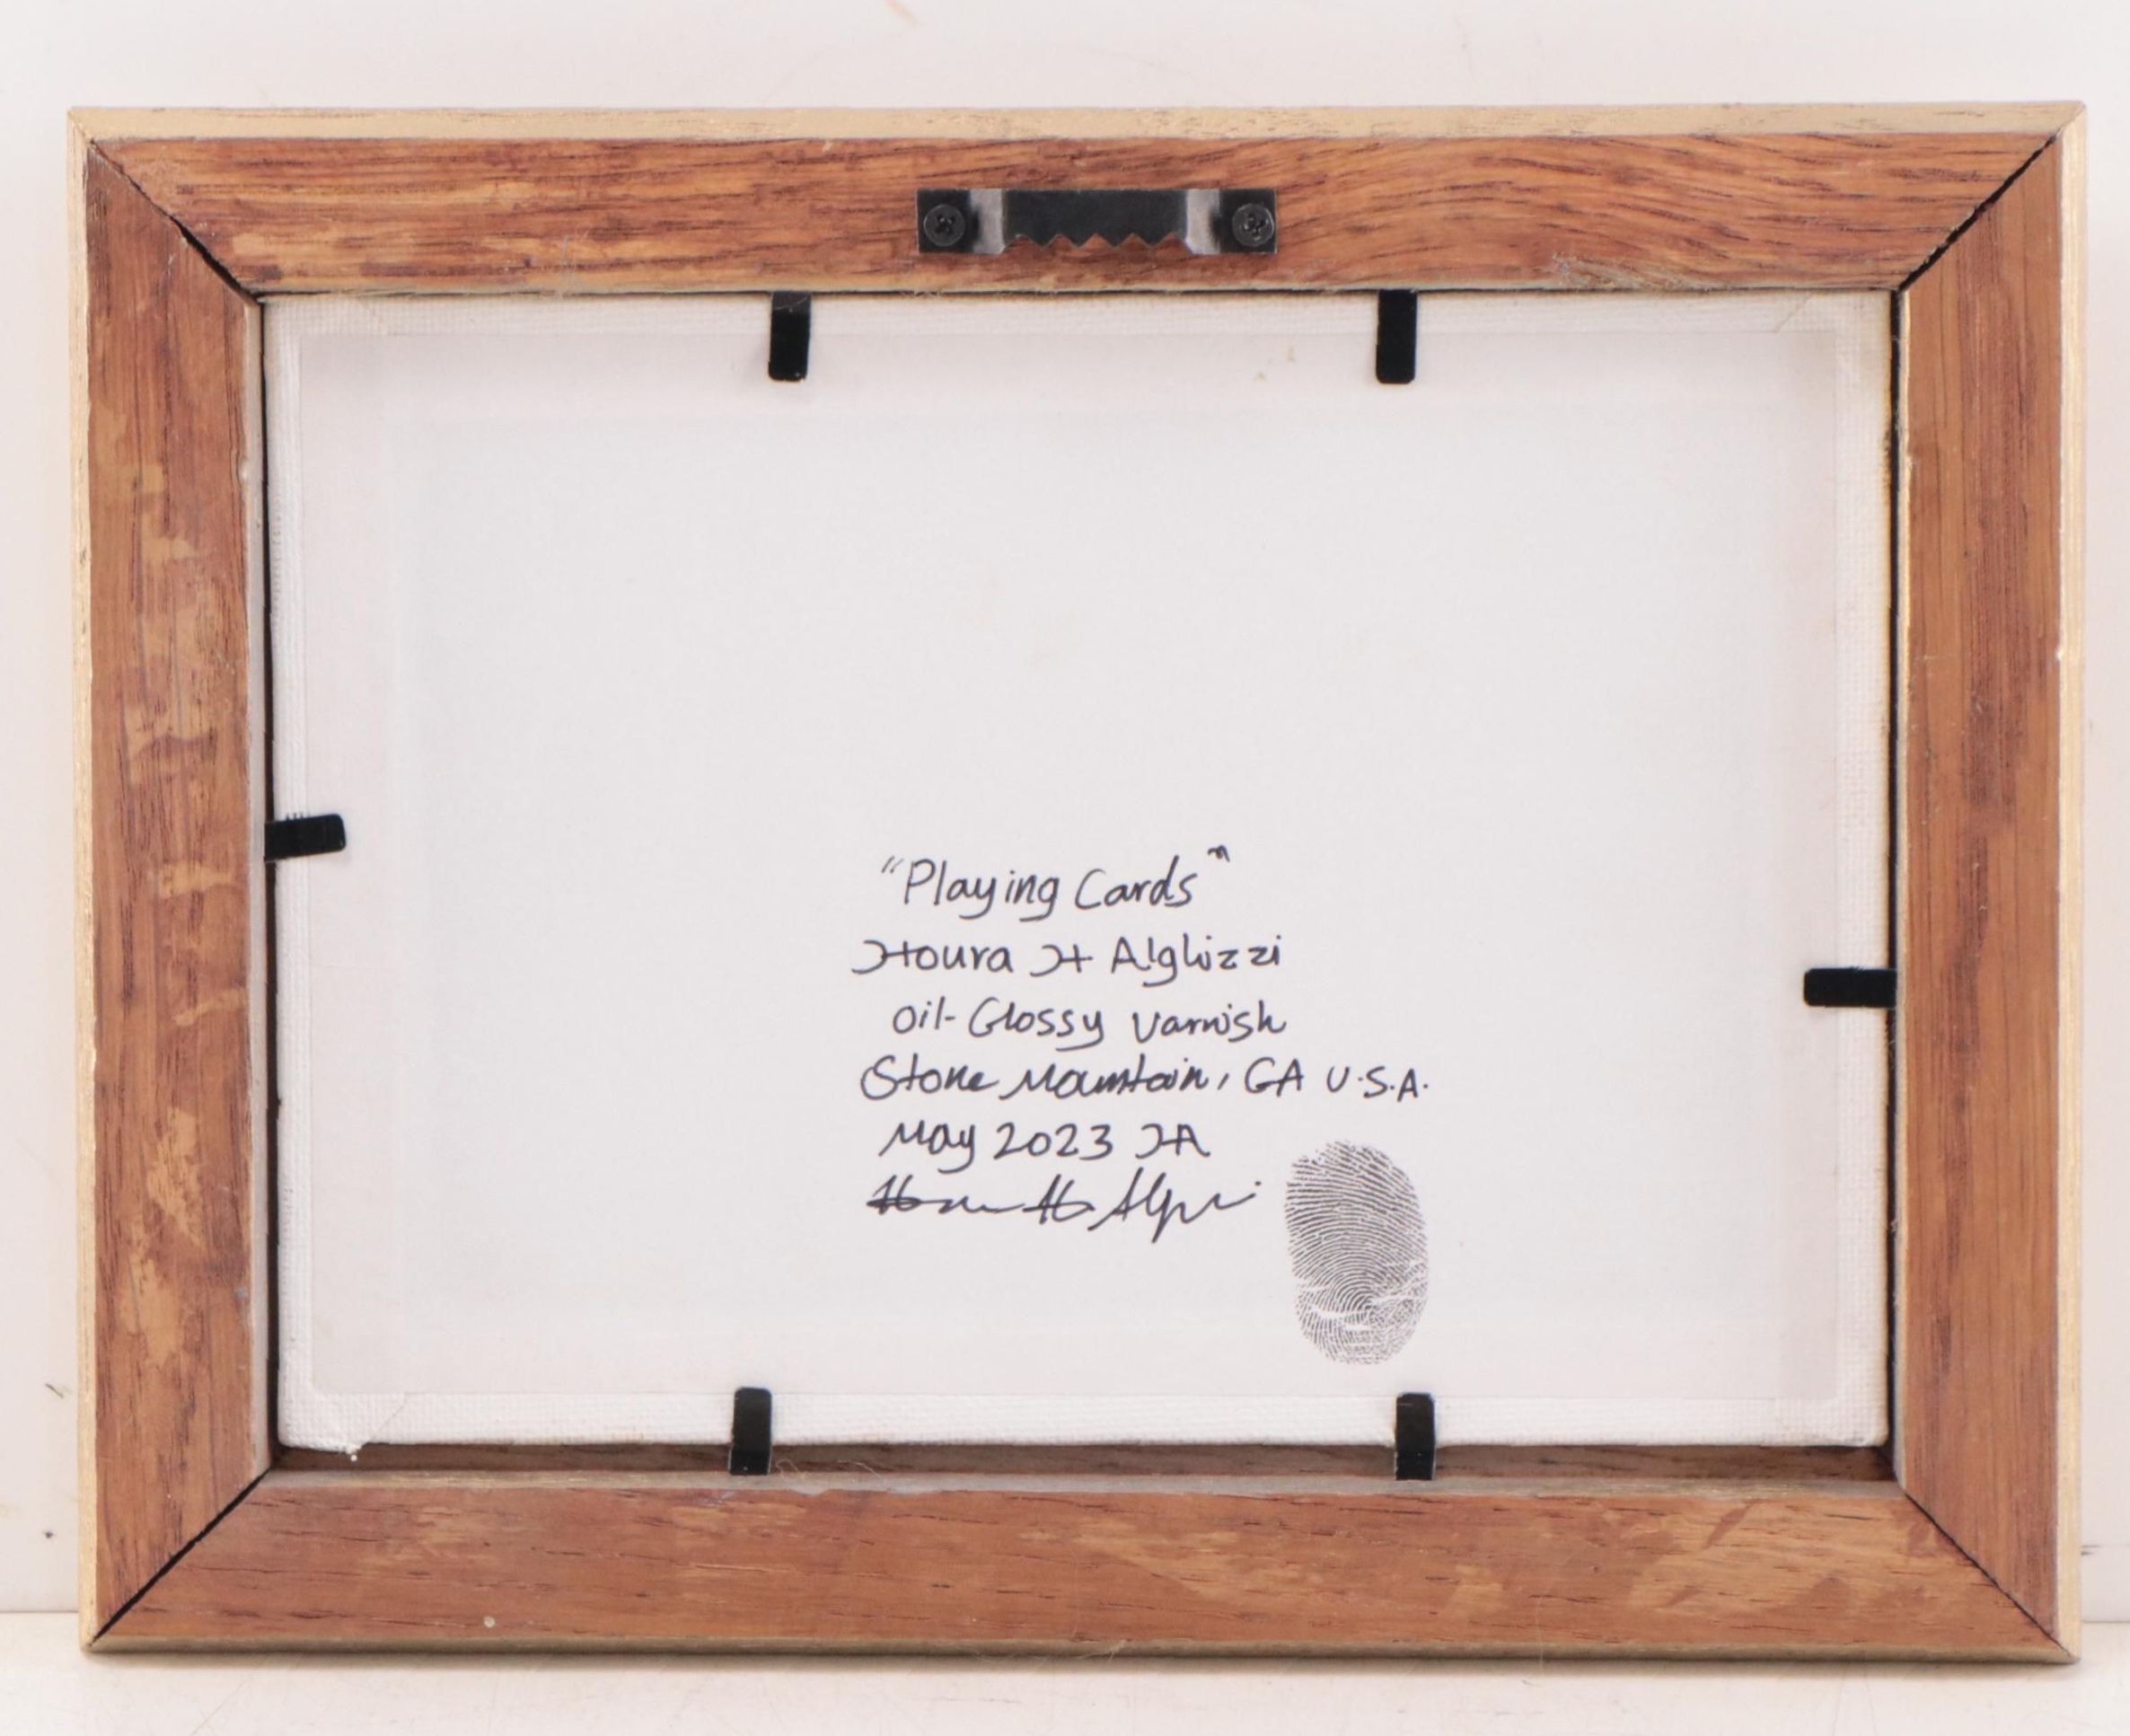 "Playing Cards"
Houra H Alghizzi
oil- Glossy varnish
Stone Mountain, GA U.S.A.
May 2023 HA